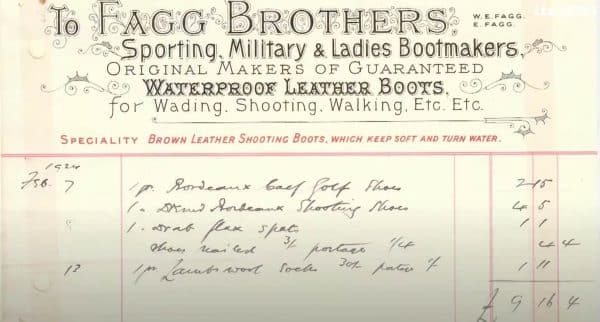 To FAGG BROTHERS,
W. E. FAGG.
E. FAGG.
Sporting, Military & Ladies Bootmakers,
ORIGINAL MAKERS OF GUARANTEED
WATERPROOF LEATHER BOOTS,
for Wading, Shooting, Walking, Etc. Etc.
SPECIALITY BROWN LEATHER SHOOTING BOOTS, WHICH KEEP SOFT AND TURN WATER.
1924
Feb. 7 1 pr. Bordeaux Calf Golf Shoes 2 15
1 " Bordeaux Shooting Shoes 4 5
1 " Drab flax spats 1 1
Shoes nailed 3/ postage 1/4 4 4
13 1 pr Lambs wool socks 1 11
£ 9 16 4